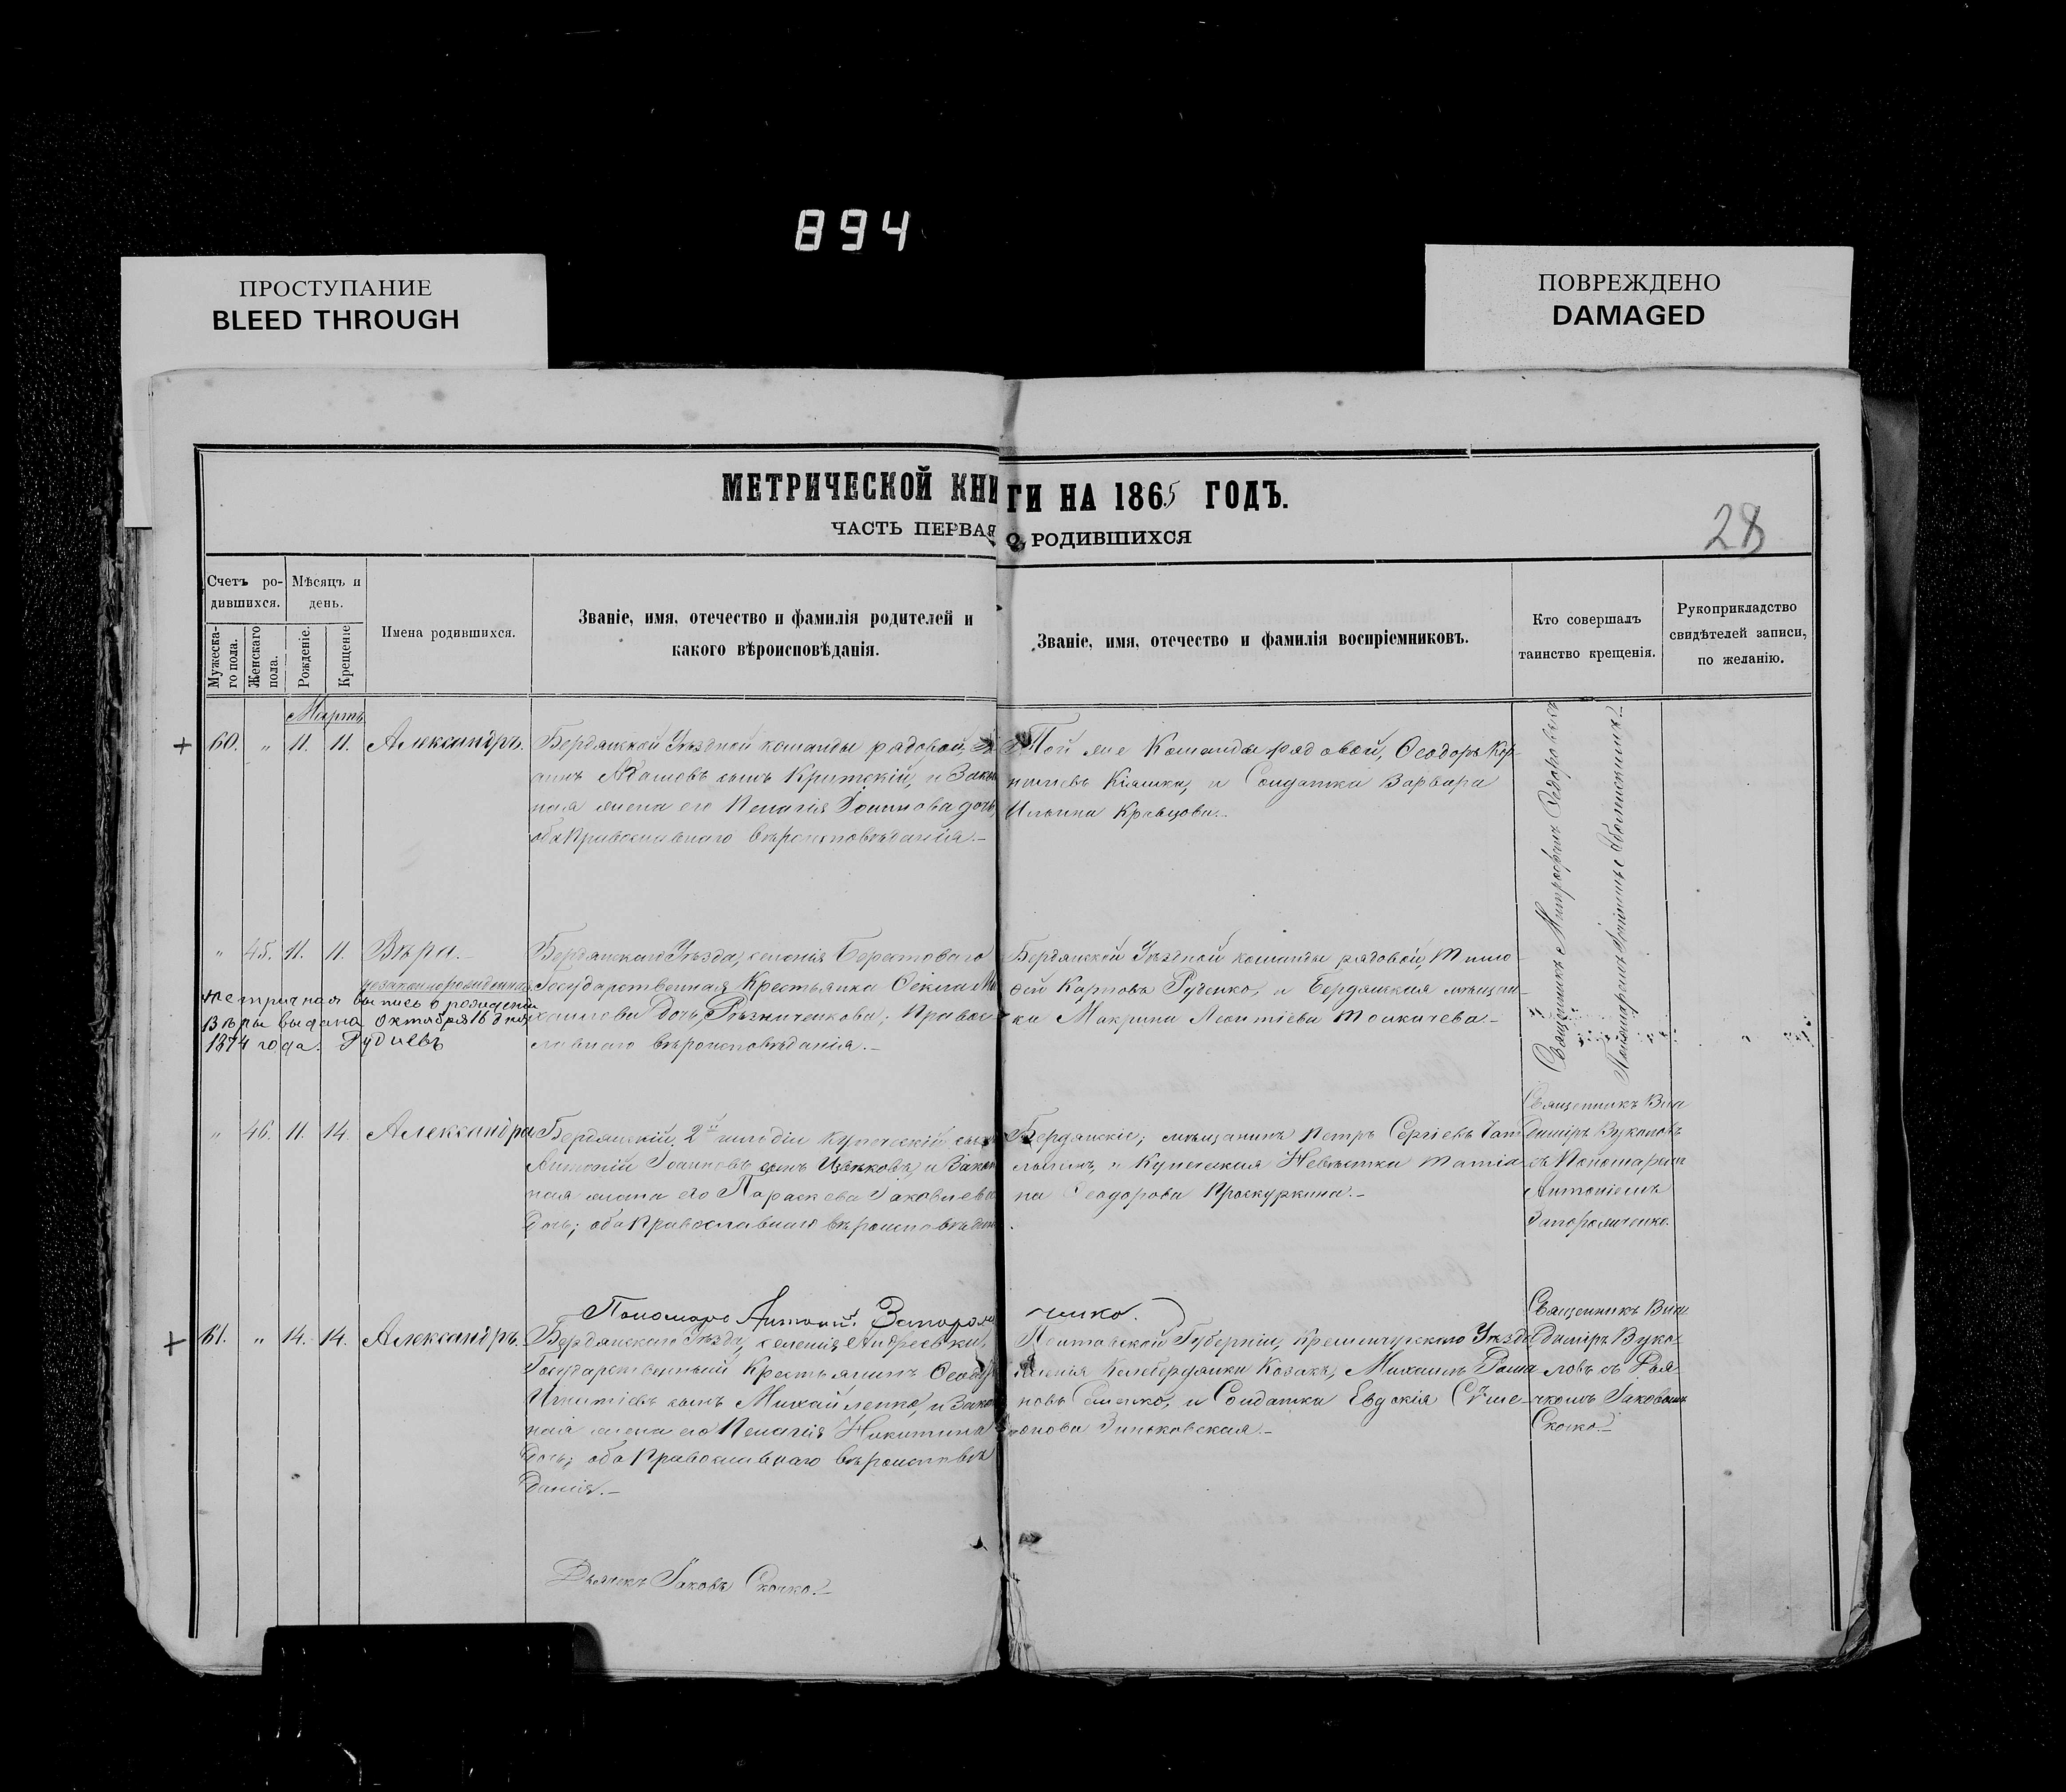 894
ПРОСТУПАНИЕ
BLEED THROUGH
ПОВРЕЖДЕНО
DAMAGED
МЕТРИЧЕСКОЙ КНИГИ НА 1865 ГОДЪ.
ЧАСТЬ ПЕРВАЯ О РОДИВШИХСЯ
28
Счетъ ро-
дившихся.
Мужеска-
го пола.
Женскаго
пола.
Мѣсяцъ и
день.
Рожденіе.
Крещеніе
Имена родившихся.
Званіе, имя, отечество и фамилія родителей и
какого вѣроисповѣданія.
Званіе, имя, отечество и фамилія воспріемниковъ.
Кто совершалъ
таинство крещенія.
Рукоприкладство
свидѣтелей записи,
по желанію.
Мартъ
60. " 11. 11. Александръ.
Бердянской Уѣздной команды рядовой,
сынъ Критскій, и Закон
ная жена его Пелагія Іоаннова дочь,
оба Православнаго вѣроисповѣданія.—
Той же Команды рядовой, Ѳеодоръ Кор
нилiевъ Кіяшка, и Солдатка Варвара
Ильина Кравцова.—
Священникъ Митрофанъ
Пономаремъ
" 45. 11. 11. Вѣра.—
незаконнорожденная
Метричная выпись о рожденіи
Вѣры выдана Октября 16 дня
1874 года. Рудневъ
Бердянскаго Уѣзда, селенія Берестоваго
Государственная Крестьянка Ѳекла Ми
хаилева Дочь, Рѣзниченкова; Правос
лавнаго вѣроисповѣданія.—
Бердянской Уѣздной команды рядовой, Тимо
ѳей Карповъ Рученко, и Бердянская мѣщан
ка Макрина Леонтіева Толкачева—
" 46. 11. 14. Александра
Бердянскій, 2й гильдіи Купеческій сынъ
Антоній Іоанновъ сынъ и Закон
ная жена его Параскева Іаковлева
Дочь; оба Православнаго вѣроисповѣдан
Бердянскіе; мѣщанинъ Петръ Сергіевъ
и Купеческая Невѣстка Татіа
на Ѳеодорова Проскурнина.—
Священникъ Вла
димиръ Вуколовъ
съ Пономаремъ
Антоніемъ
Запорожченко.
Пономарь Антоній Запорож
ченко.
61. " 14. 14. Александръ.
Бердянскаго Уѣзда, селенія Андреевки,
Государственный Крестьянинъ Ѳеодоръ
Игнатіевъ сынъ Михайленко, и Закон
ная жена его Пелагія Никитина
Дочь; оба Православнаго вѣроисповѣ
данія.—
Полтавской Губерніи, Кременчугскаго Уѣзда
селенія Келебердянки Козакъ, Михаилъ Рома
новъ Семенко, и Солдатка Евдокія Сѵме
онова Зинковская.—
Священникъ Вла
димиръ Вуко
ловъ съ Дья
чкомъ Іаковомъ
Скочко.—
Дьячекъ Іаковъ Скочко.—